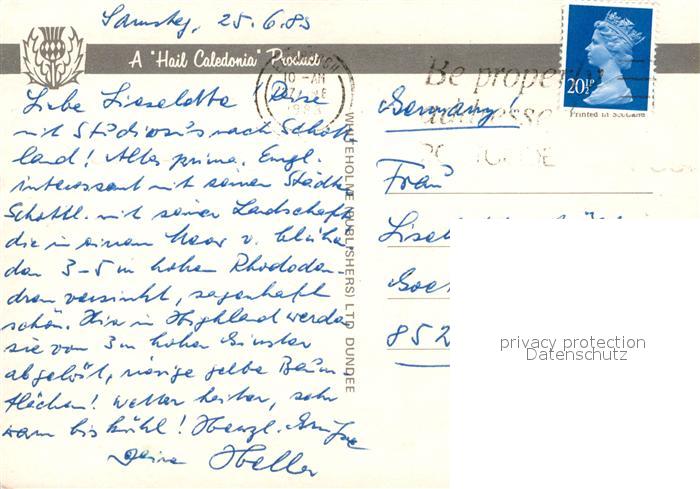 Samstag, 25.6.83
A "Hail Caledonia" Product
Liebe Lieselotte! Reise
mit Studiosus nach Schott-
land! Alles prima. Engl.
interessant mit seinen Städten
Schottl. mit seiner Landschaft
die in einem Meer v. blühen-
den 3-5 m hohen Rhododen-
dren versinkt, sagenhaft
schön. Hier in Highland werden
sie von 3 m hohen Ginster
abgelöst, riesige gelbe
flächen! Wetter heiter, sehr
warm bis kühl! Herzl. Grüße
Deine
WHITEHOLME (PUBLISHERS) LTD DUNDEE
10 - AM
Be properly
20½P
Printed in Scotland
Germany!
Frau
852
privacy protection
Datenschutz